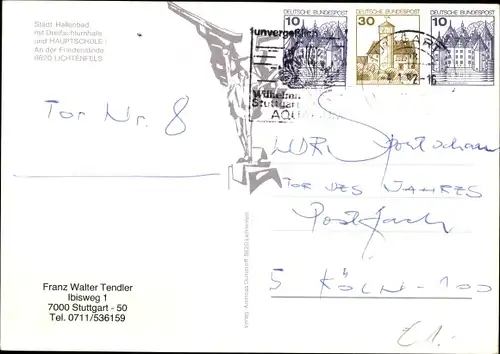 Städt. Hallenbad
mit Dreifachturnhalle
und HAUPTSCHULE I
An der Friedenslinde
8620 LICHTENFELS
10 DEUTSCHE BUNDESPOST
30 DEUTSCHE BUNDESPOST
10 DEUTSCHE BUNDESPOST
unvergeßlich
Wilhelma
Stuttgart
Tor Nr. 8
WDR Sportschau
TOR DES JAHRES
Postfach
5 KÖLN-100
Franz Walter Tendler
Ibisweg 1
7000 Stuttgart - 50
Tel. 0711/536159
8620 Lichtenfels